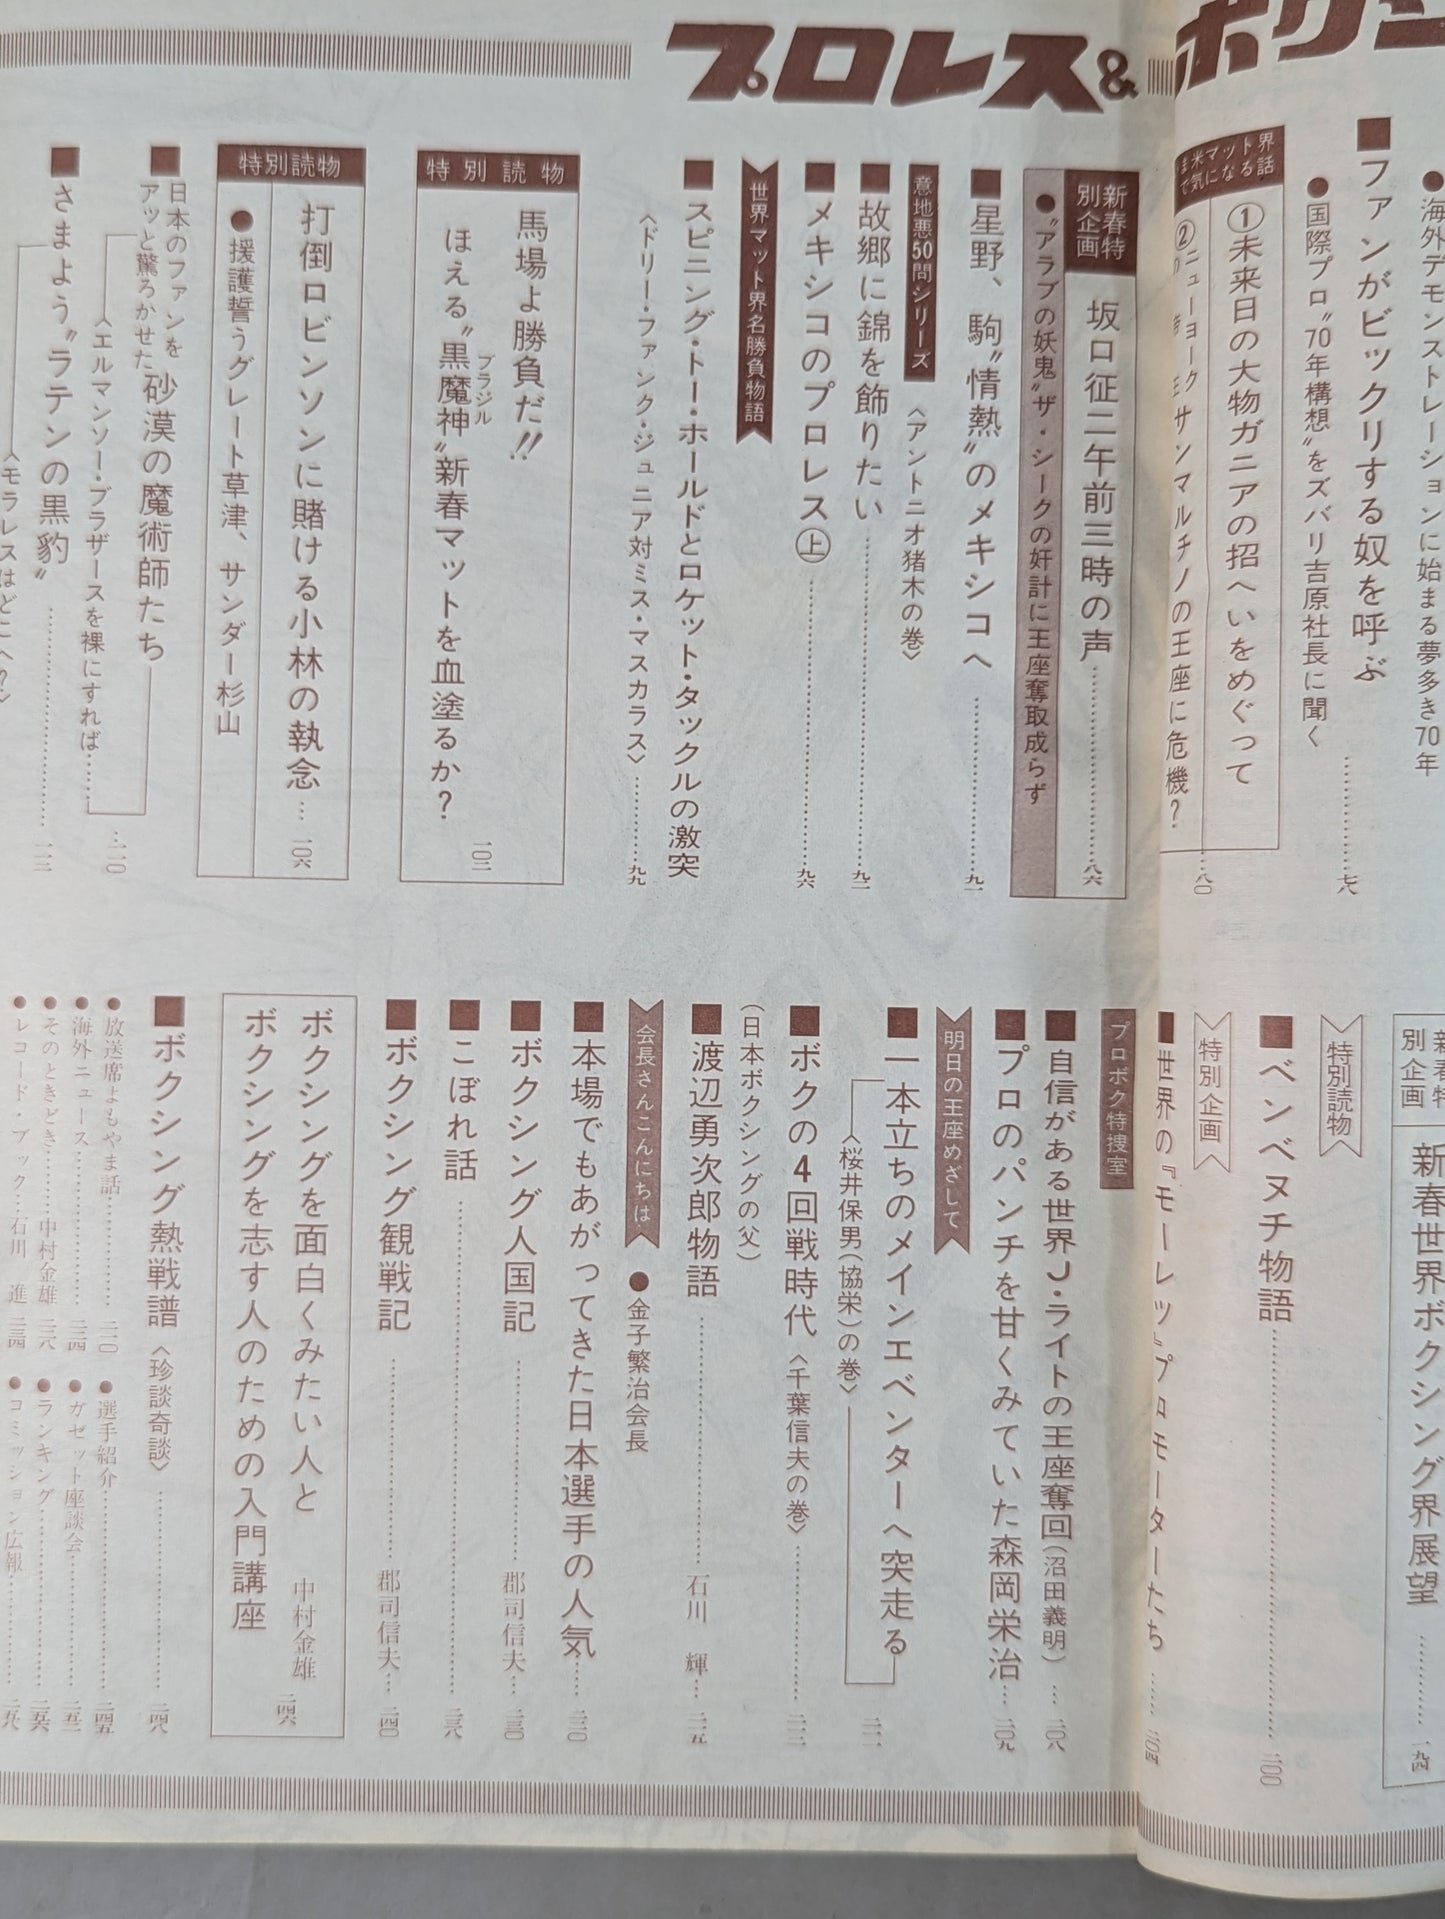 プロレス&ボクシ
●海外デモンストレーションに始まる夢多き70年
■ファンがビックリする奴を呼ぶ……七八
●国際プロ“70年構想”をズバリ吉原社長に聞く
米マット界
で気になる話
①未来日の大物ガニアの招へいをめぐって
②ニューヨーク
サンマルチノの王座に危機?……八〇
新春特別企画
坂口征二午前三時の声……八六
●“アラブの妖鬼”ザ・シークの奸計に王座奪取成らず
■星野、駒“情熱”のメキシコへ……九一
意地悪50問シリーズ
〈アントニオ猪木の巻〉
■故郷に錦を飾りたい……九二
■メキシコのプロレス㊤……九六
世界マット界名勝負物語
■スピニング・トー・ホールドとロケット・タックルの激突
〈ドリー・ファンク・ジュニア対ミス・マスカラス〉……九九
特別読物
馬場よ勝負だ!!
ほえる“黒魔神”新春マットを血塗るか?
ブラジル
一〇二
特別読物
打倒ロビンソンに賭ける小林の執念…一〇六
●援護誓うグレート草津、サンダー杉山
■日本のファンを
アッと驚ろかせた
砂漠の魔術師たち
〈エルマンソー・ブラザースを裸にすれば……一一〇
■さまよう“ラテンの黒豹”……一一三
〈モラレスはどこへ?〉
新春特別企画
新春世界ボクシング界展望……一九四
特別読物
■ベンベヌチ物語……二〇〇
特別企画
■世界の『モーレツ』プロモーターたち……二〇四
プロボク特捜室
■自信がある世界J・ライトの王座奪回(沼田義明)…二〇八
■プロのパンチを甘くみていた森岡栄治…二〇九
明日の王座めざして
■一本立ちのメインエベンターへ突走る
〈桜井保男(協栄)の巻〉
二一一
■ボクの4回戦時代〈千葉信夫の巻〉……二一二
(日本ボクシングの父)
■渡辺勇次郎物語……石川 輝…二一五
会長さんこんにちは
●金子繁治会長
■本場でもあがってきた日本選手の人気……二二〇
■ボクシング人国記……郡司信夫…二三〇
■こぼれ話……二三八
■ボクシング観戦記……郡司信夫…二四〇
ボクシングを面白くみたい人と
ボクシングを志す人のための入門講座
中村金雄
二四六
■ボクシング熱戦譜〈珍談奇談〉……二四八
●放送席よもやま話……二一〇
●海外ニュース……二二四
●そのときどき……中村金雄 二二八
●レコード・ブック…石川 進 二三四
●選手紹介……二四五
●ガゼット座談会……二五二
●ランキング……二五六
●コミッション広報……二五八